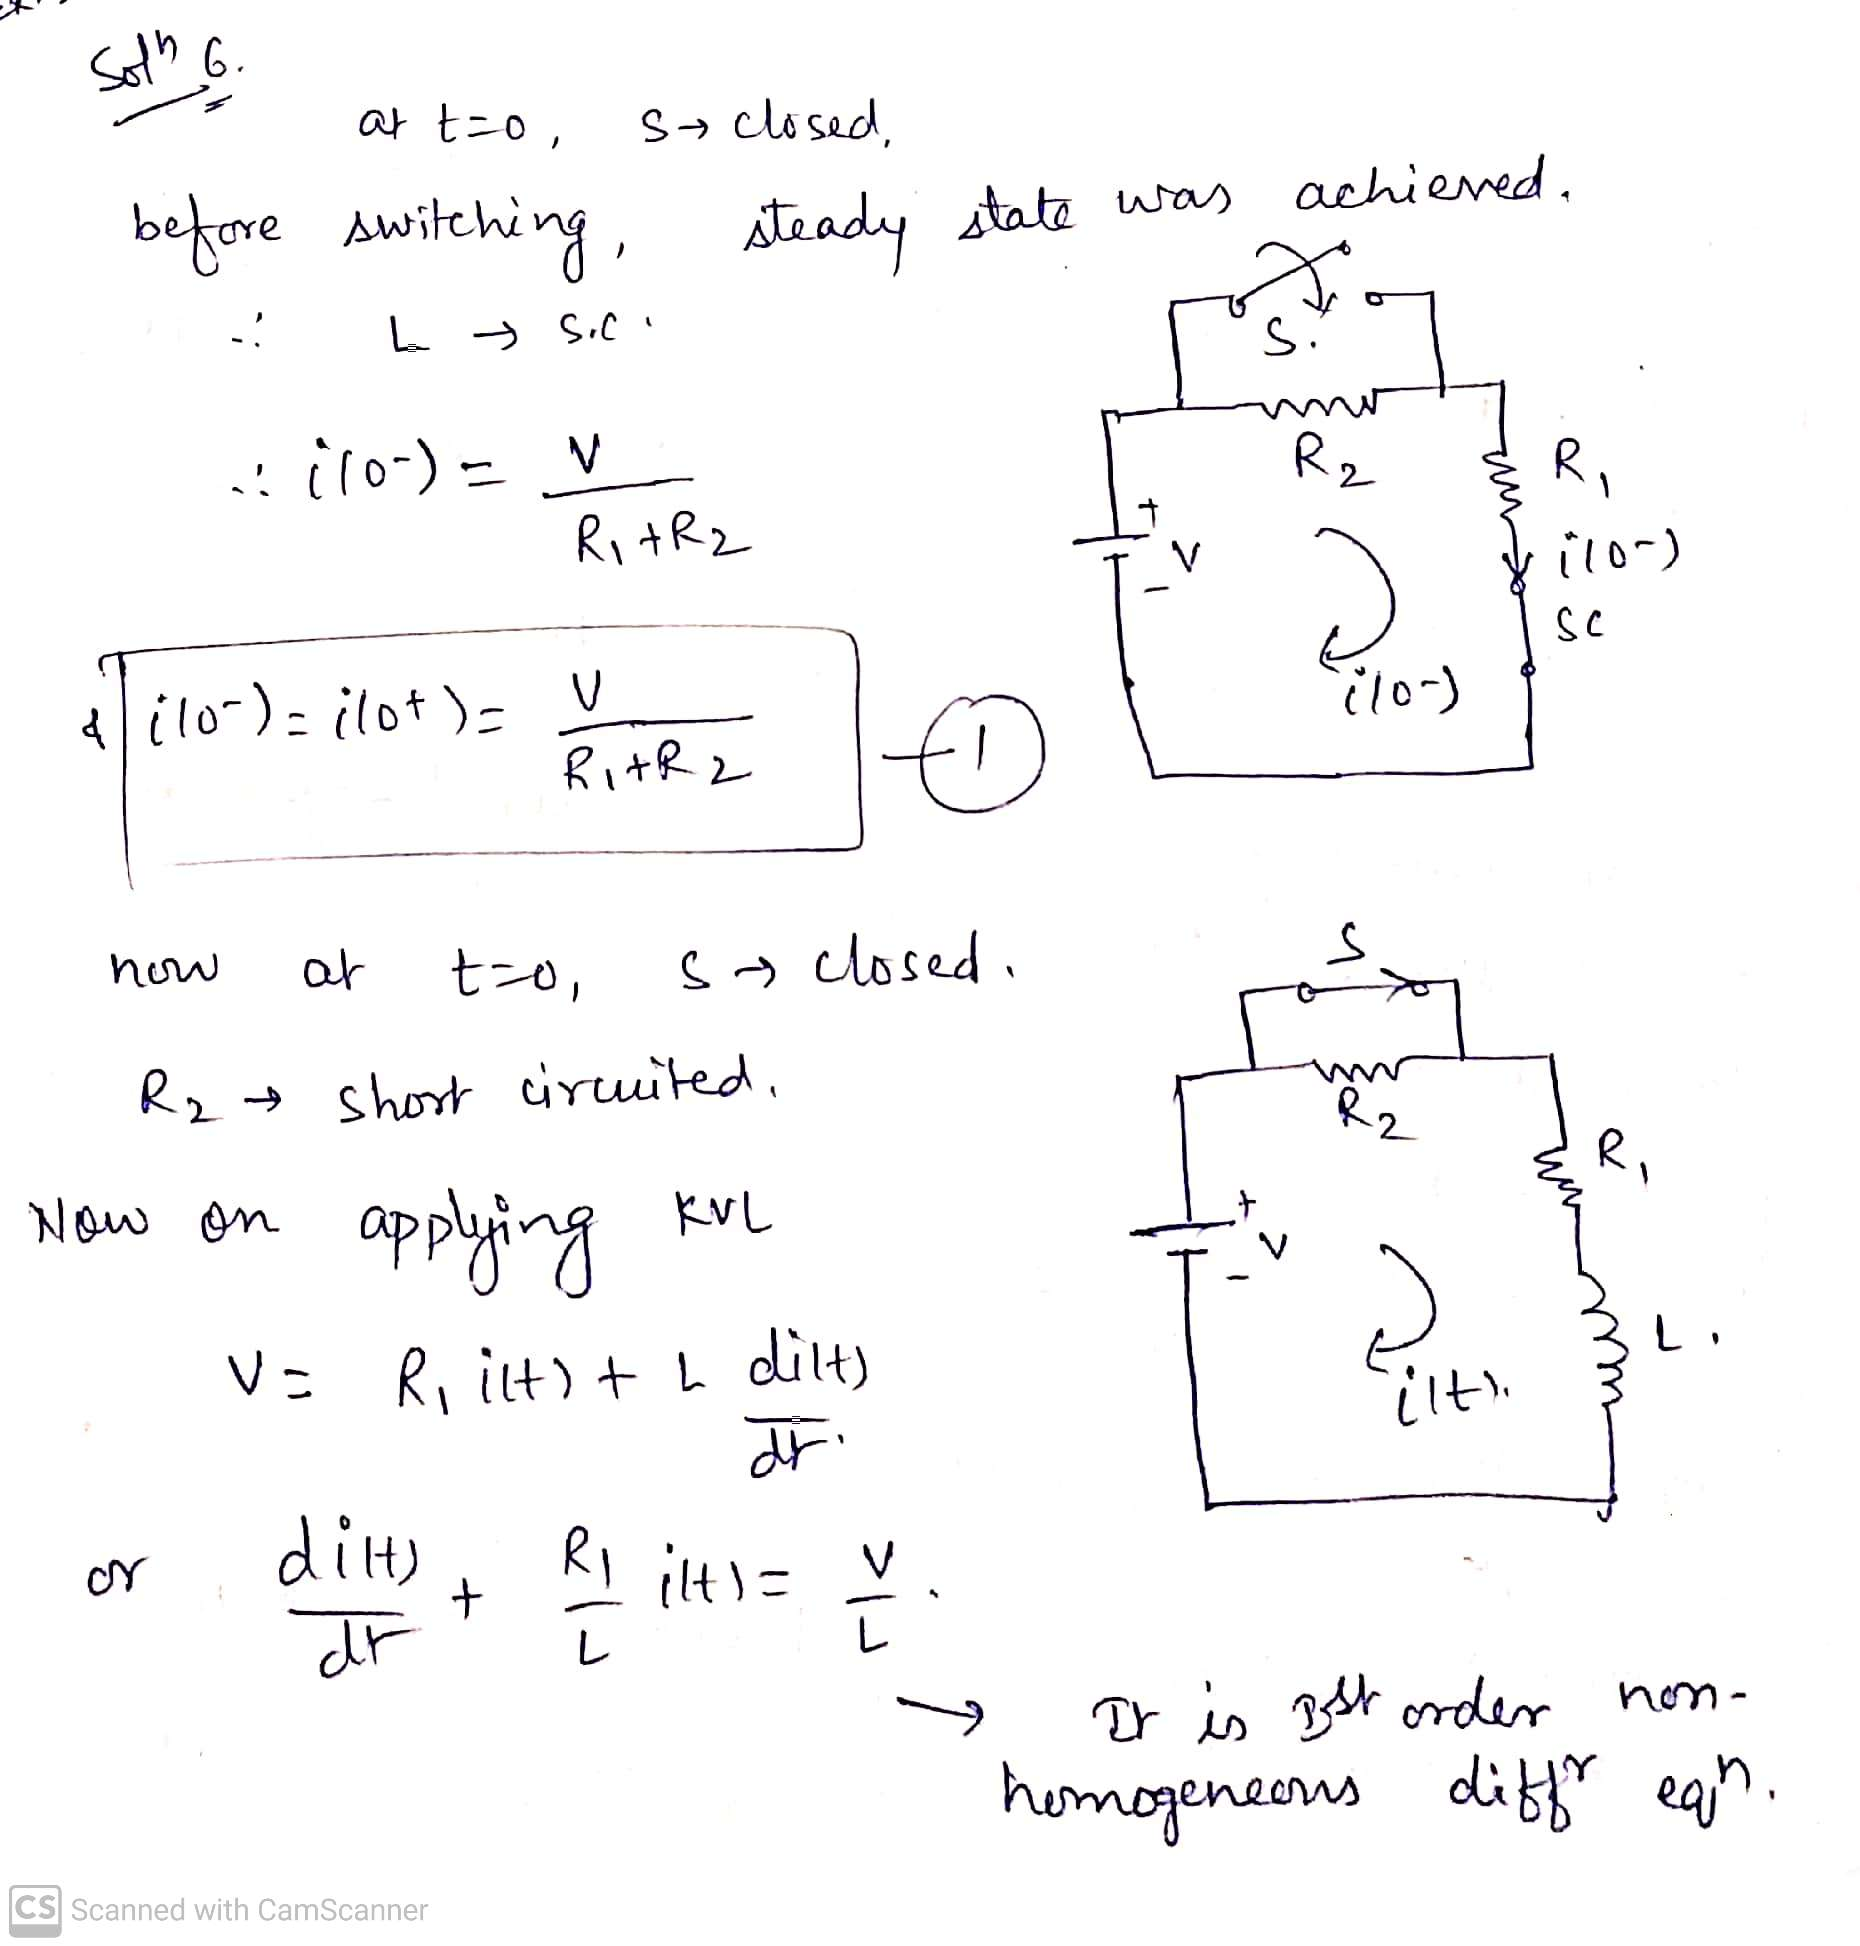 Solⁿ 6.
at t=0, S → closed,
before switching, steady state was achieved.
∴ L → s.c.
∴ i(0-) = V / R1+R2
& i(0-) = i(0+) = V / R1+R2 — 1
S.
R2
R1
+
V
-
i(0-)
SC
i(0-)
now at t=0, S → closed.
R2 → short circuited.
Now on applying KVL
V = R1 i(t) + L di(t)/dt.
or di(t)/dt + R1/L i(t) = V/L.
→ It is Ist order non-
homogeneous diffr eqn.
S
R2
R1
+
V
-
L.
i(t).
CS Scanned with CamScanner